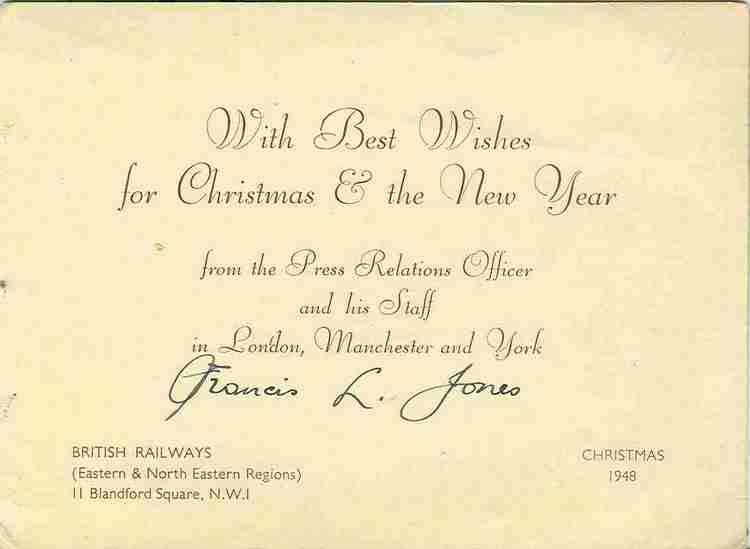 With Best Wishes
for Christmas & the New Year
from the Press Relations Officer
and his Staff
in London, Manchester and York
Francis L. Jones
BRITISH RAILWAYS
(Eastern & North Eastern Regions)
11 Blandford Square, N.W.1
CHRISTMAS
1948